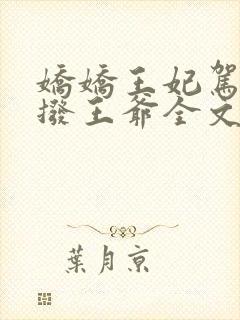 嬌嬌王妃駕
撥王爺全文
葉月京